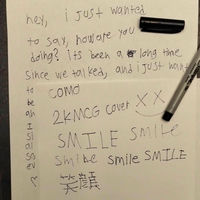 hey, i just wanted
to say, how are you
doing? its been a long time
since we talked, and i just want
COMO
2KMCG cover XX
SMILE smile
smile smile SMILE
笑顔